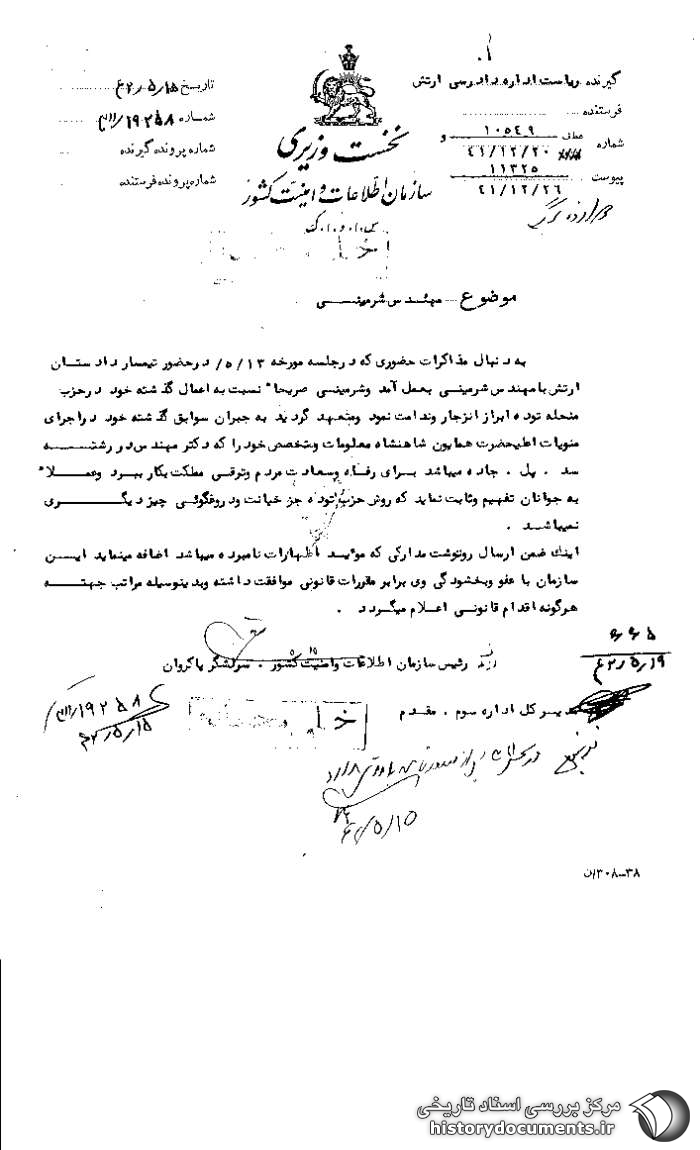 گیرنده ریاست اداره دادرسی ارتش
فرستنده
شماره عطف ۱۰۵۴۹ و
۴۱/۱۲/۲۰
پیوست ۱۱۳۲۵
۴۱/۱۲/۲۶
نخست وزیری
سازمان اطلاعات و امنیت کشور
س.ا.و.ا.ک
تاریخ ۴۲/۵/۱۵
شماره ۱۹۲۵۸
شماره پرونده گیرنده
شماره پرونده فرستنده
موضوع - مهندس شرمینی
به دنبال مذاکرات حضوری که در جلسه مورخه ۵/۱۳/ در حضور تیمسار دادستان
ارتش با مهندس شرمینی بعمل آمد وشرمینی صریحا" نسبت به اعمال گذشته خود در حزب
منحله توده ابراز انزجار وندامت نمود ومتعهد گردید به جبران سوابق گذشته خود در اجرای
منویات اعلیحضرت همایون شاهنشاه معلومات وتخصص خود را که دکتر مهندس در رشته
سد . پل . جاده میباشد برای رفاه وسعادت مردم وترقی مملکت بکار ببرد وعملا"
به جوانان تفهیم وثابت نماید که روش حزب توده جز خیانت ودروغگوئی چیز دیگری
نمیباشد .
اینك ضمن ارسال رونوشت مدارکی که موئید اظهارات نامبرده میباشد اضافه مینماید این
سازمان با عفو وبخشودگی وی برابر مقررات قانونی موافقت داشته وبدینوسیله مراتب جهت
هرگونه اقدام قانونی اعلام میگردد .
رئیس سازمان اطلاعات وامنیت کشور . سرلشگر پاکروان
۶۶۵
۴۲/۵/۱۹
مدیر کل اداره سوم . مقدم
۱۹۲۵۸
۴۲/۵/۱۵
۴۲/۵/۱۵
۳۸-۱۳۰۸ن
مرکز بررسی اسناد تاریخی
historydocuments.ir